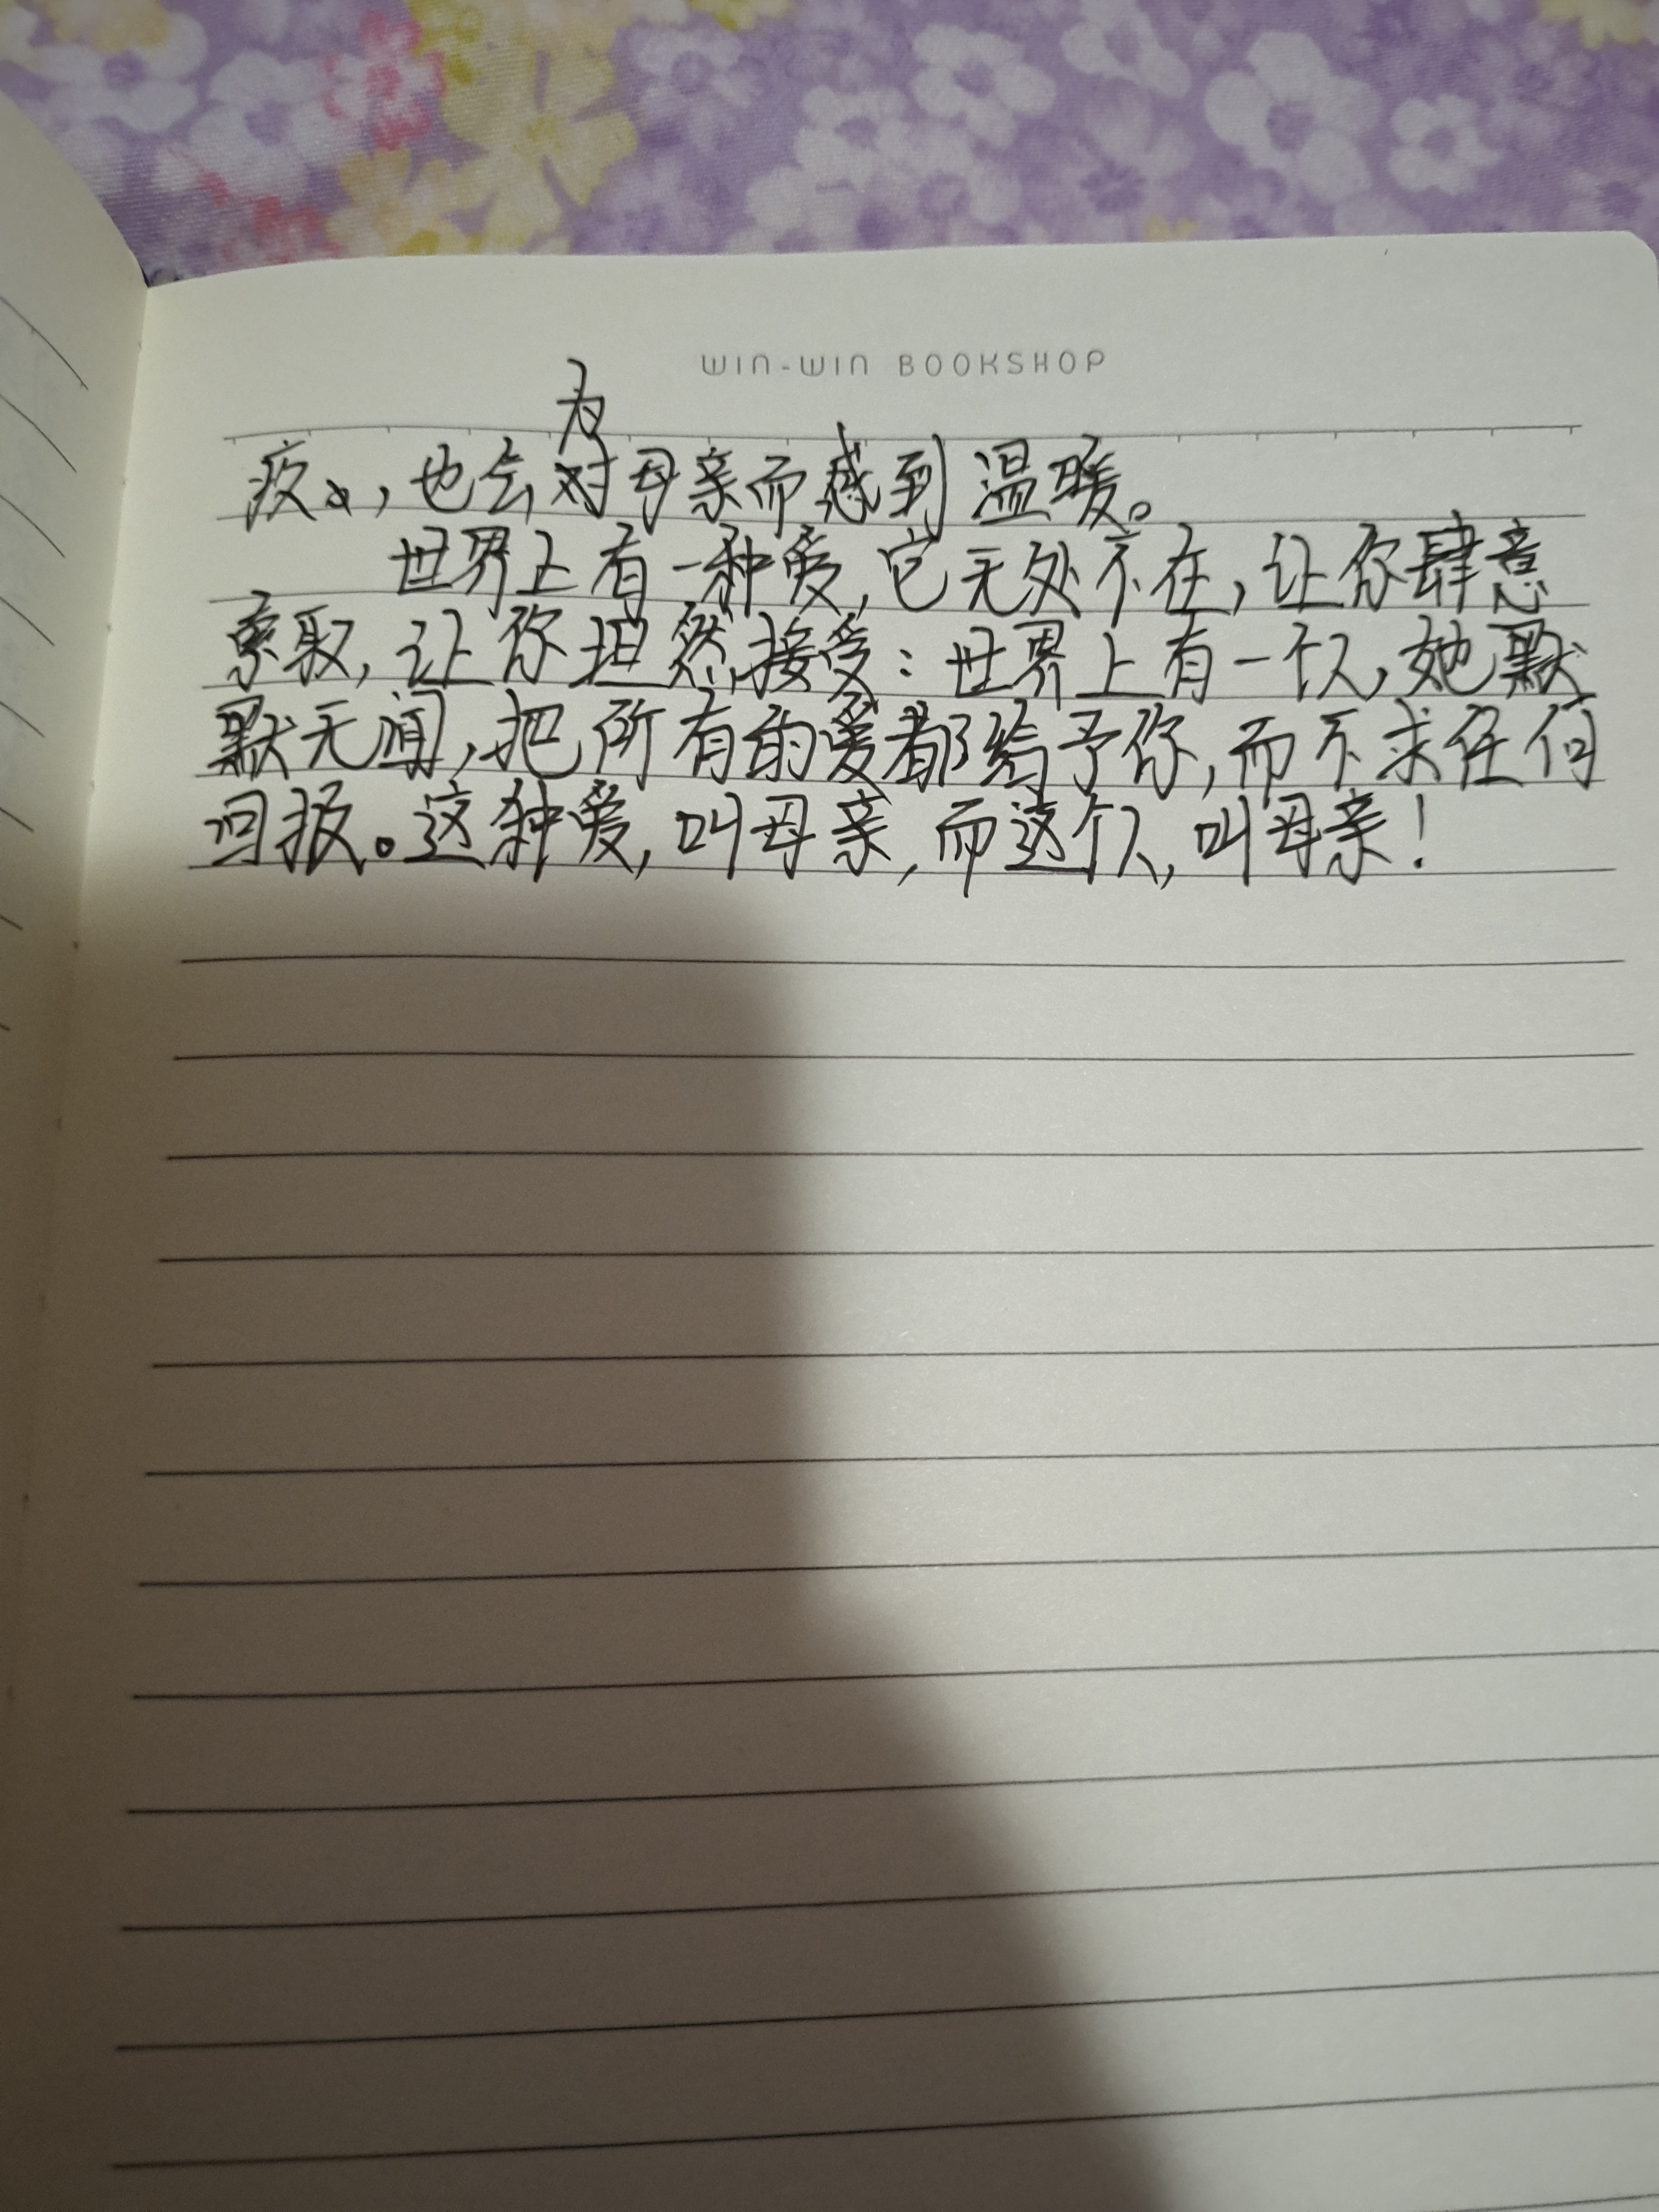 WIN-WIN BOOKSHOP
为
疚，也会对母亲而感到温暖。
世界上有一种爱，它无处不在，让你肆意
索取，让你坦然接受：世界上有一个人，她默
默无闻，把所有的爱都给予你，而不求任何
回报。这种爱，叫母亲，而这个人，叫母亲！